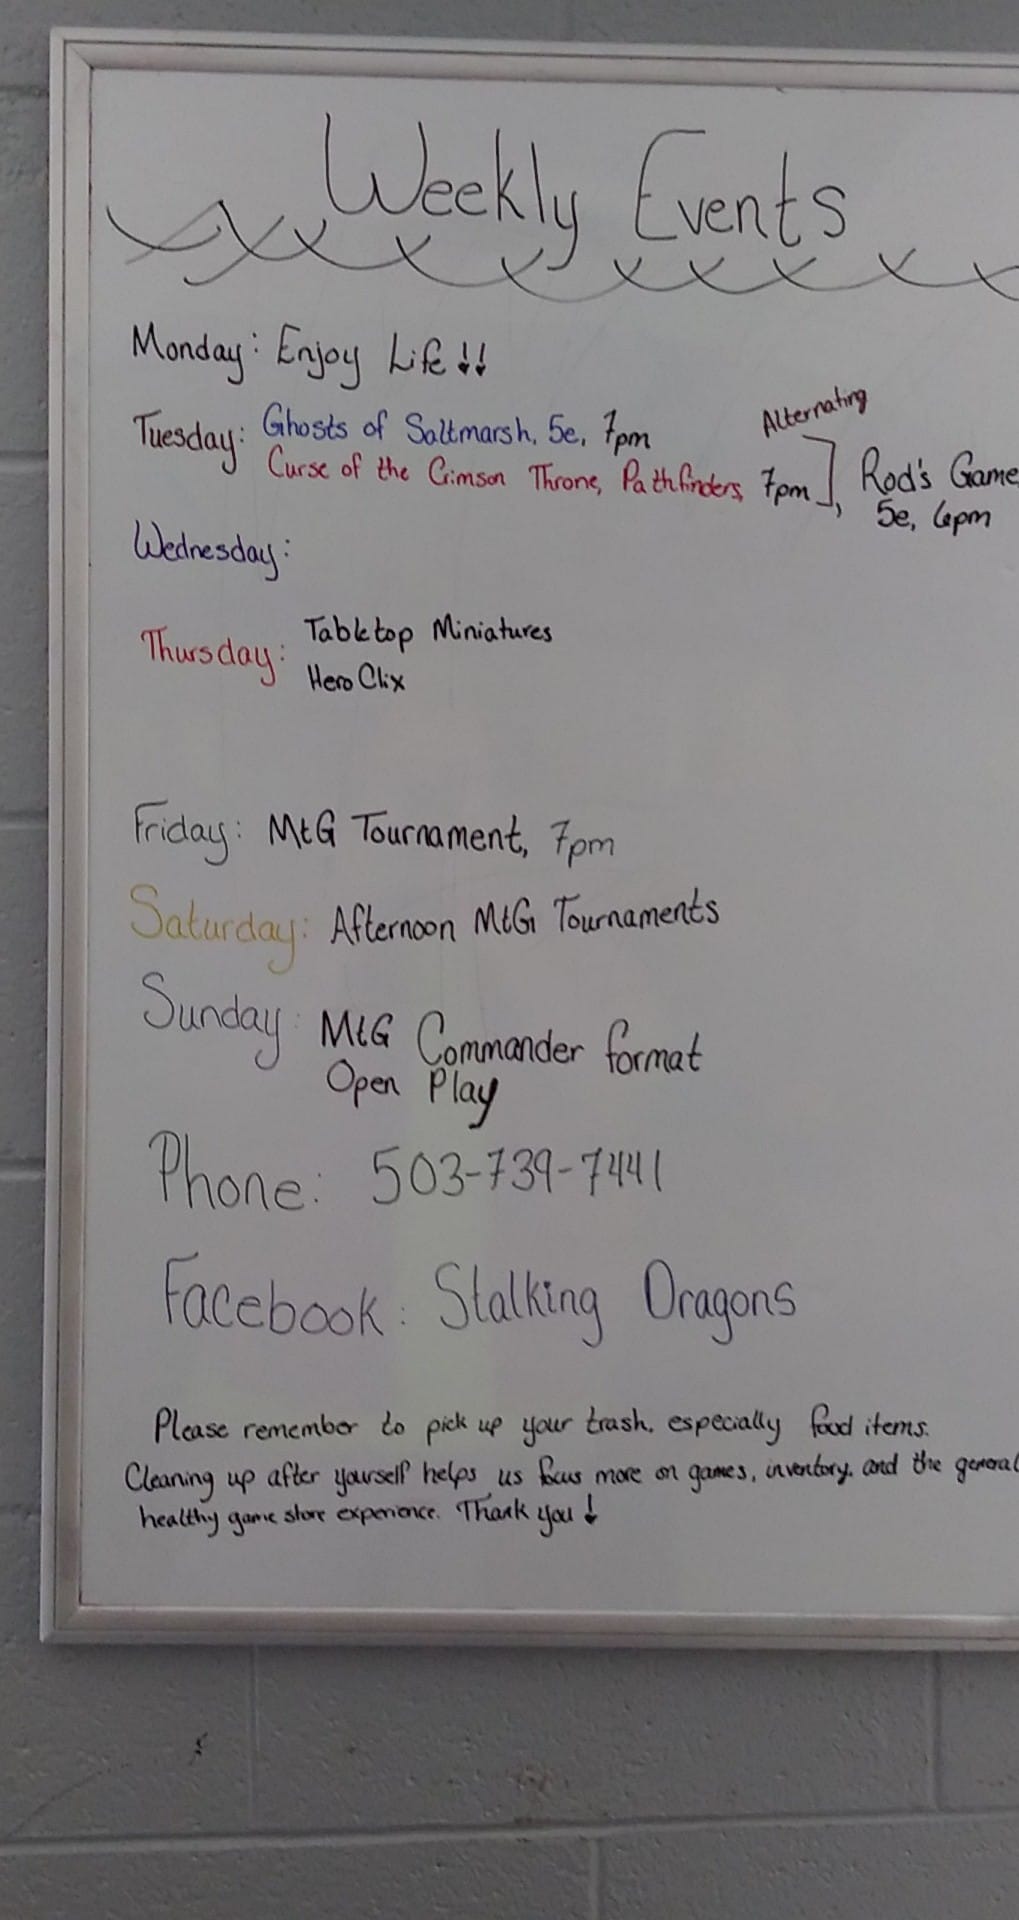 Weekly Events
Monday: Enjoy Life!!
Alternating
Tuesday: Ghosts of Saltmarsh, 5e, 7pm
Curse of the Crimson Throne, Pathfinders, 7pm], Rod's Game
5e, 6pm
Wednesday:
Thursday: Tabletop Miniatures
HeroClix
Friday: MtG Tournament, 7pm
Saturday: Afternoon MtG Tournaments
Sunday: MtG Commander format
Open Play
Phone: 503-739-7441
Facebook: Stalking Dragons
Please remember to pick up your trash, especially food items.
Cleaning up after yourself helps us focus more on games, inventory, and the general
healthy game store experience. Thank you!